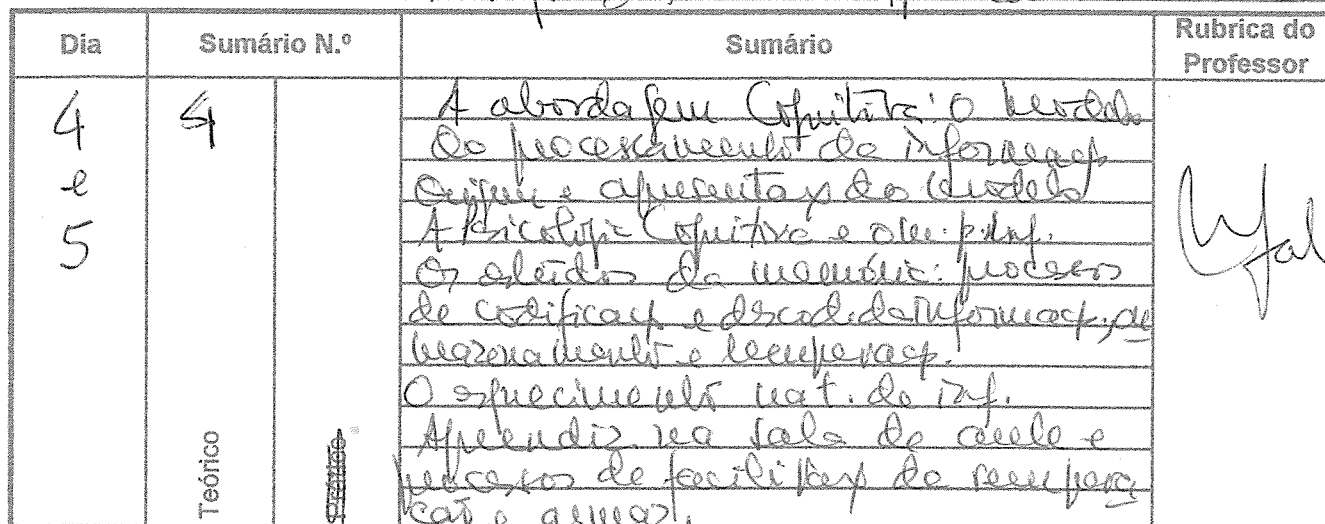 Dia Sumário N.º Sumário Rubrica do Professor
4 e 5
4
Teórico
A abordagem Cognitiva: O modelo
do processamento da informaç.
Origem e apresentaç do modelo
A Psicologia Cognitiva e o p. Inf.
Os estudos da memória: processos
de codificaç e descod. da informaç.,
mazenamento e recuperaç.
O esquecimento nat. da inf.
Aprendiz. na sala de aula e
processos de facilitaç da recupera
ção e armaz.